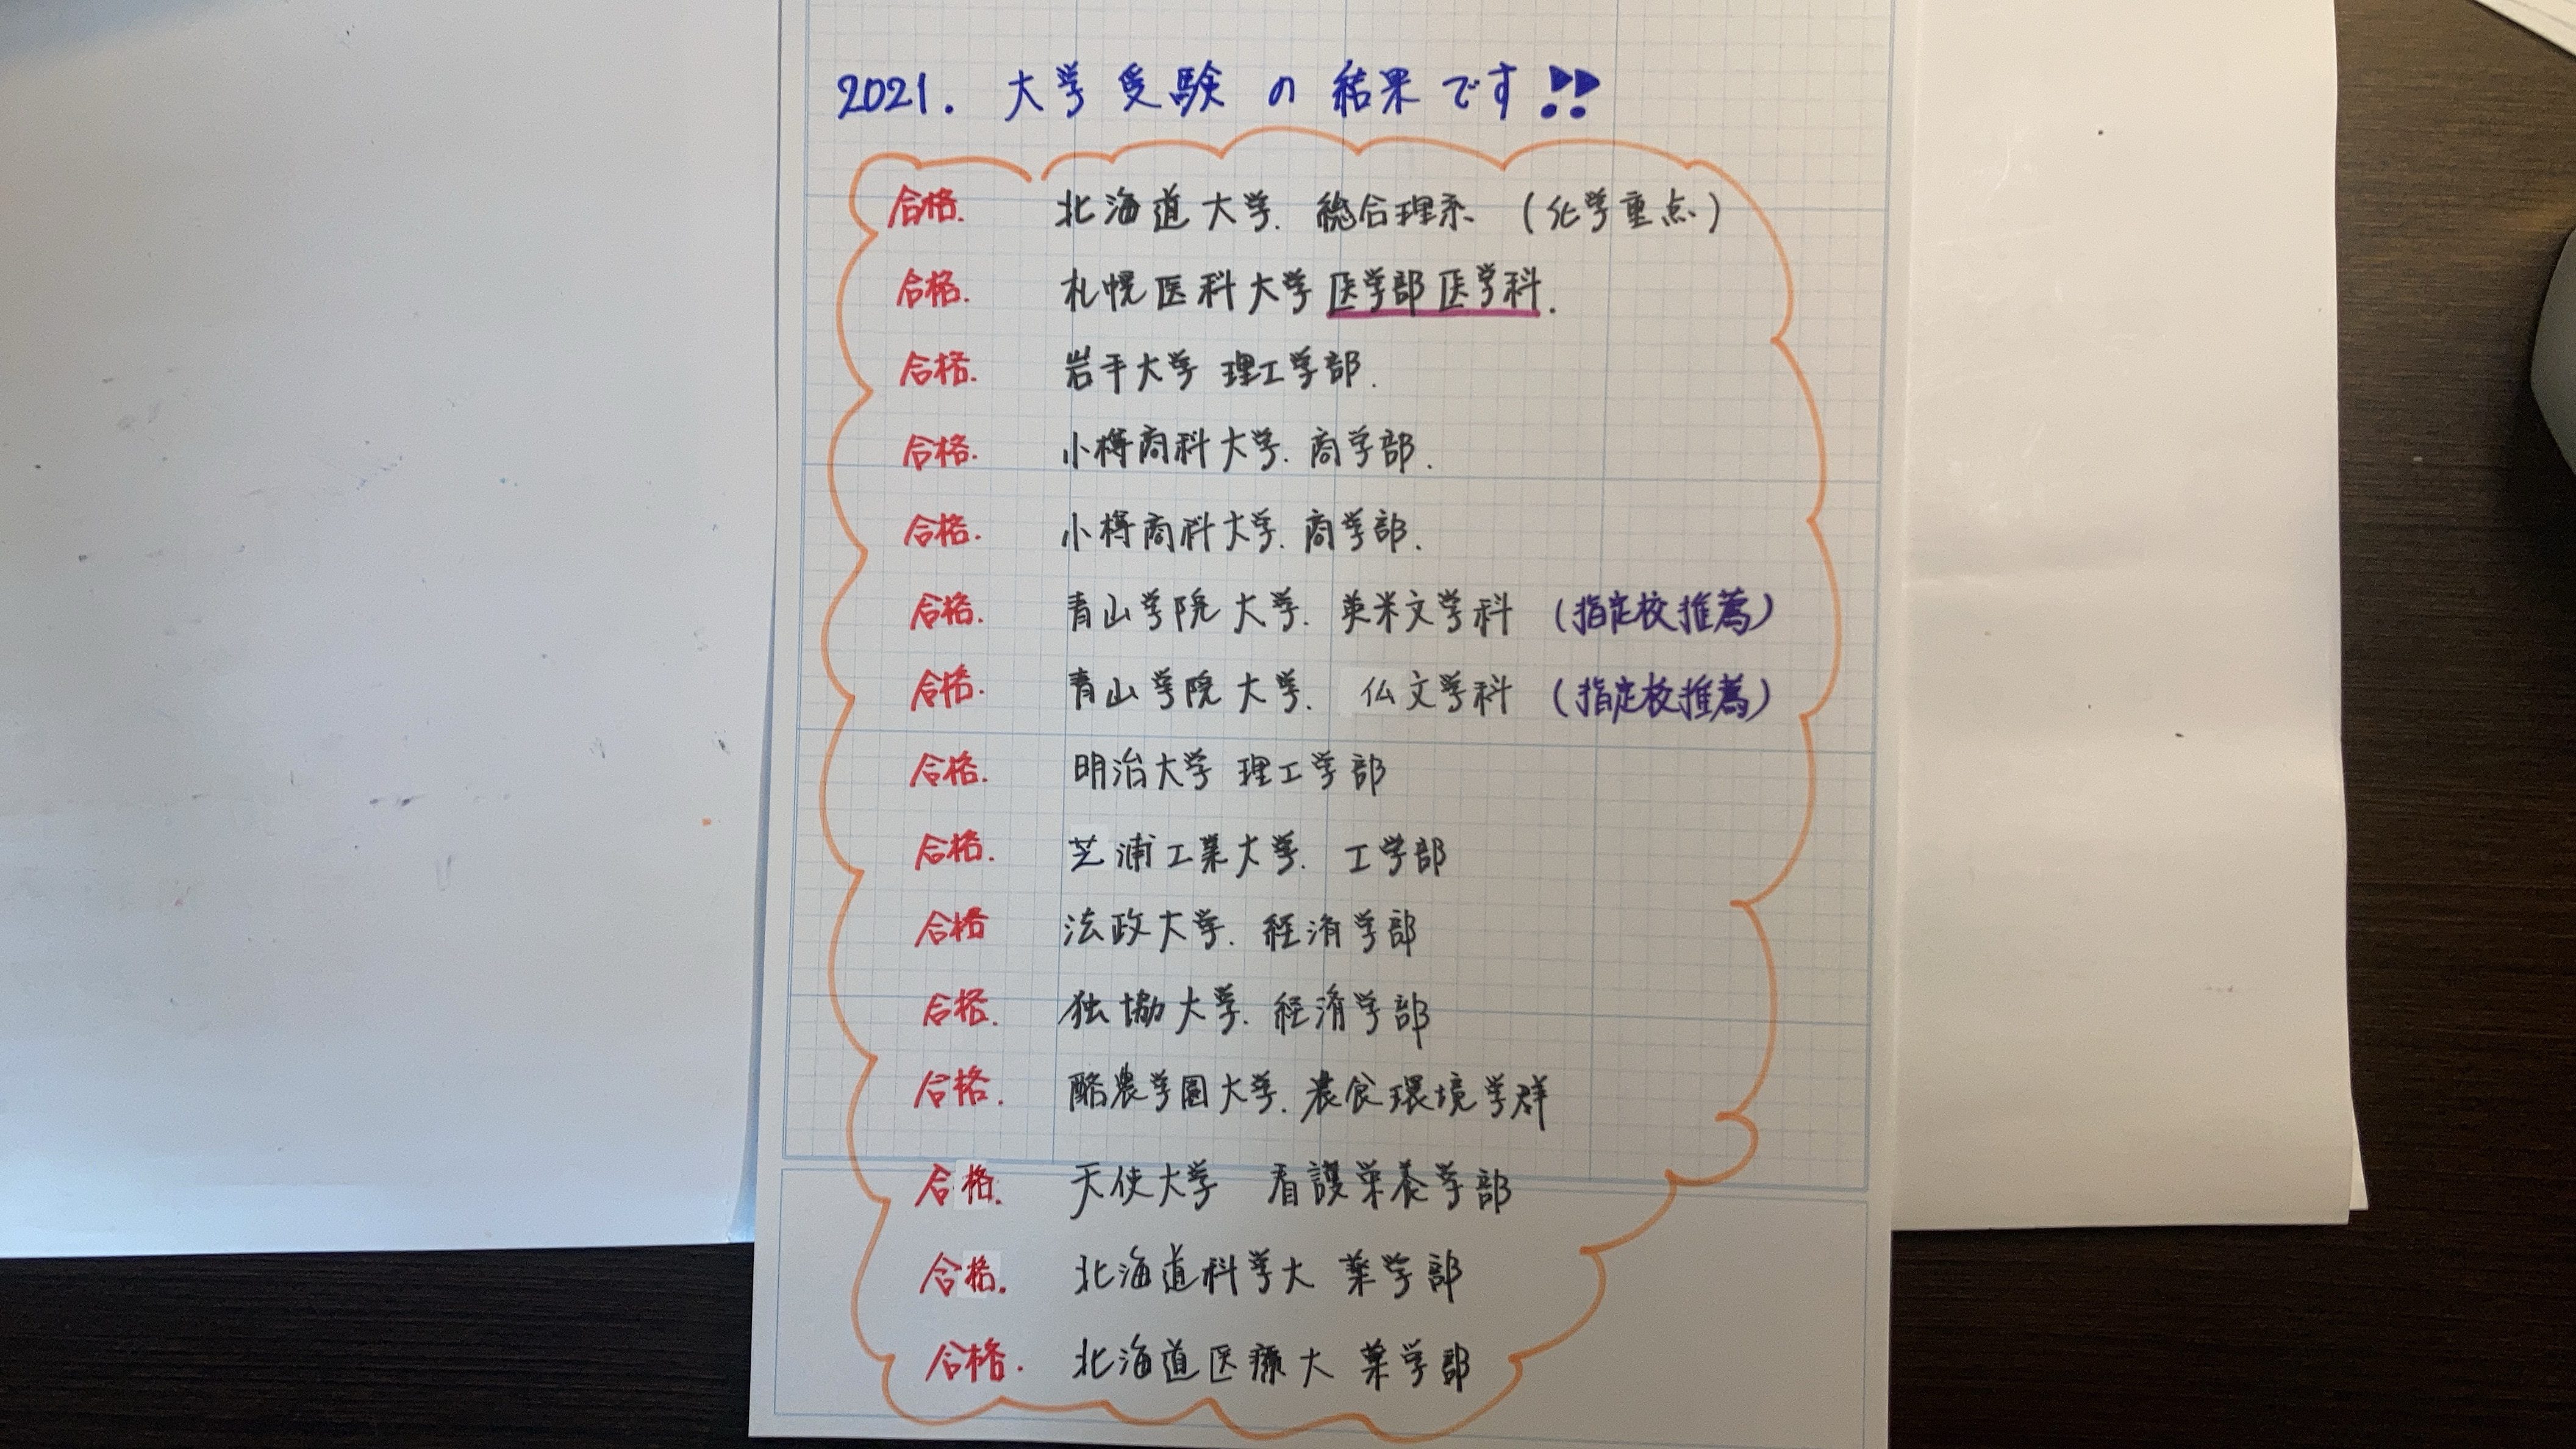 2021. 大学受験の結果です!!
合格. 北海道大学. 総合理系 (化学重点)
合格. 札幌医科大学 医学部 医学科.
合格. 岩手大学 理工学部.
合格. 小樽商科大学. 商学部.
合格. 小樽商科大学. 商学部.
合格. 青山学院大学. 英米文学科 (指定校推薦)
合格. 青山学院大学. 仏文学科 (指定校推薦)
合格. 明治大学 理工学部
合格. 芝浦工業大学. 工学部
合格 法政大学. 経済学部
合格. 独協大学. 経済学部
合格. 酪農学園大学. 農食環境学群
合格. 天使大学 看護栄養学部
合格. 北海道科学大 薬学部
合格. 北海道医療大 薬学部